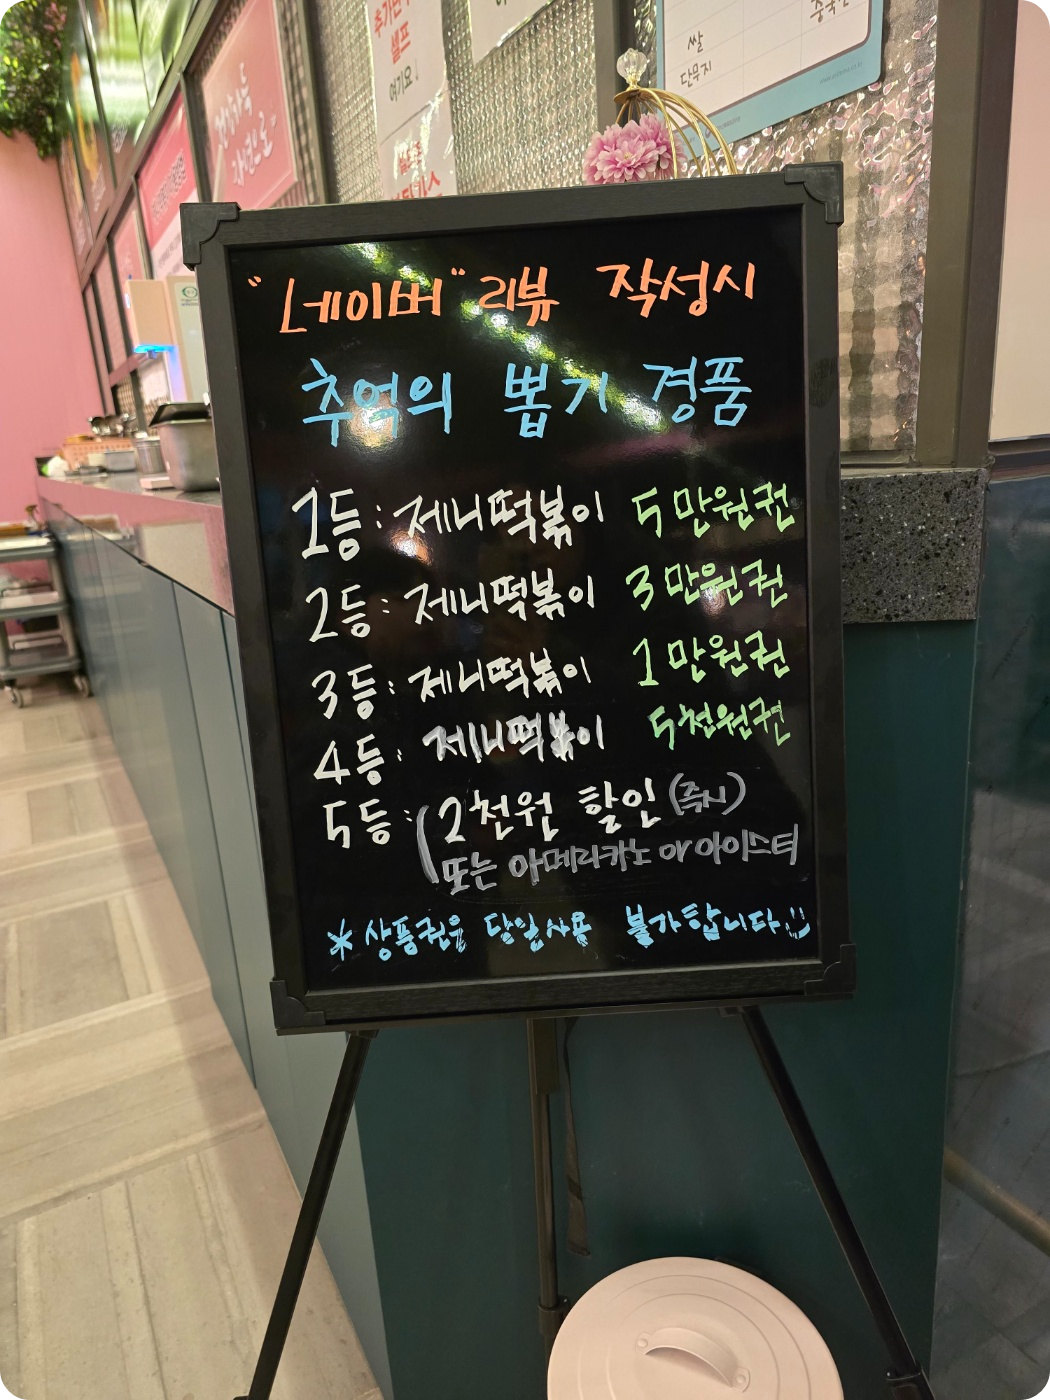 추가반찬
셀프
여기요!
쌀
단무지
"네이버" 리뷰 작성시
추억의 뽑기 경품
1등 : 제니떡볶이 5만원권
2등 : 제니떡볶이 3만원권
3등 : 제니떡볶이 1만원권
4등 : 제니떡볶이 5천원권
5등 : (2천원 할인 (즉시)
또는 아메리카노 or 아이스티
* 상품권은 당일사용 불가합니다 :)